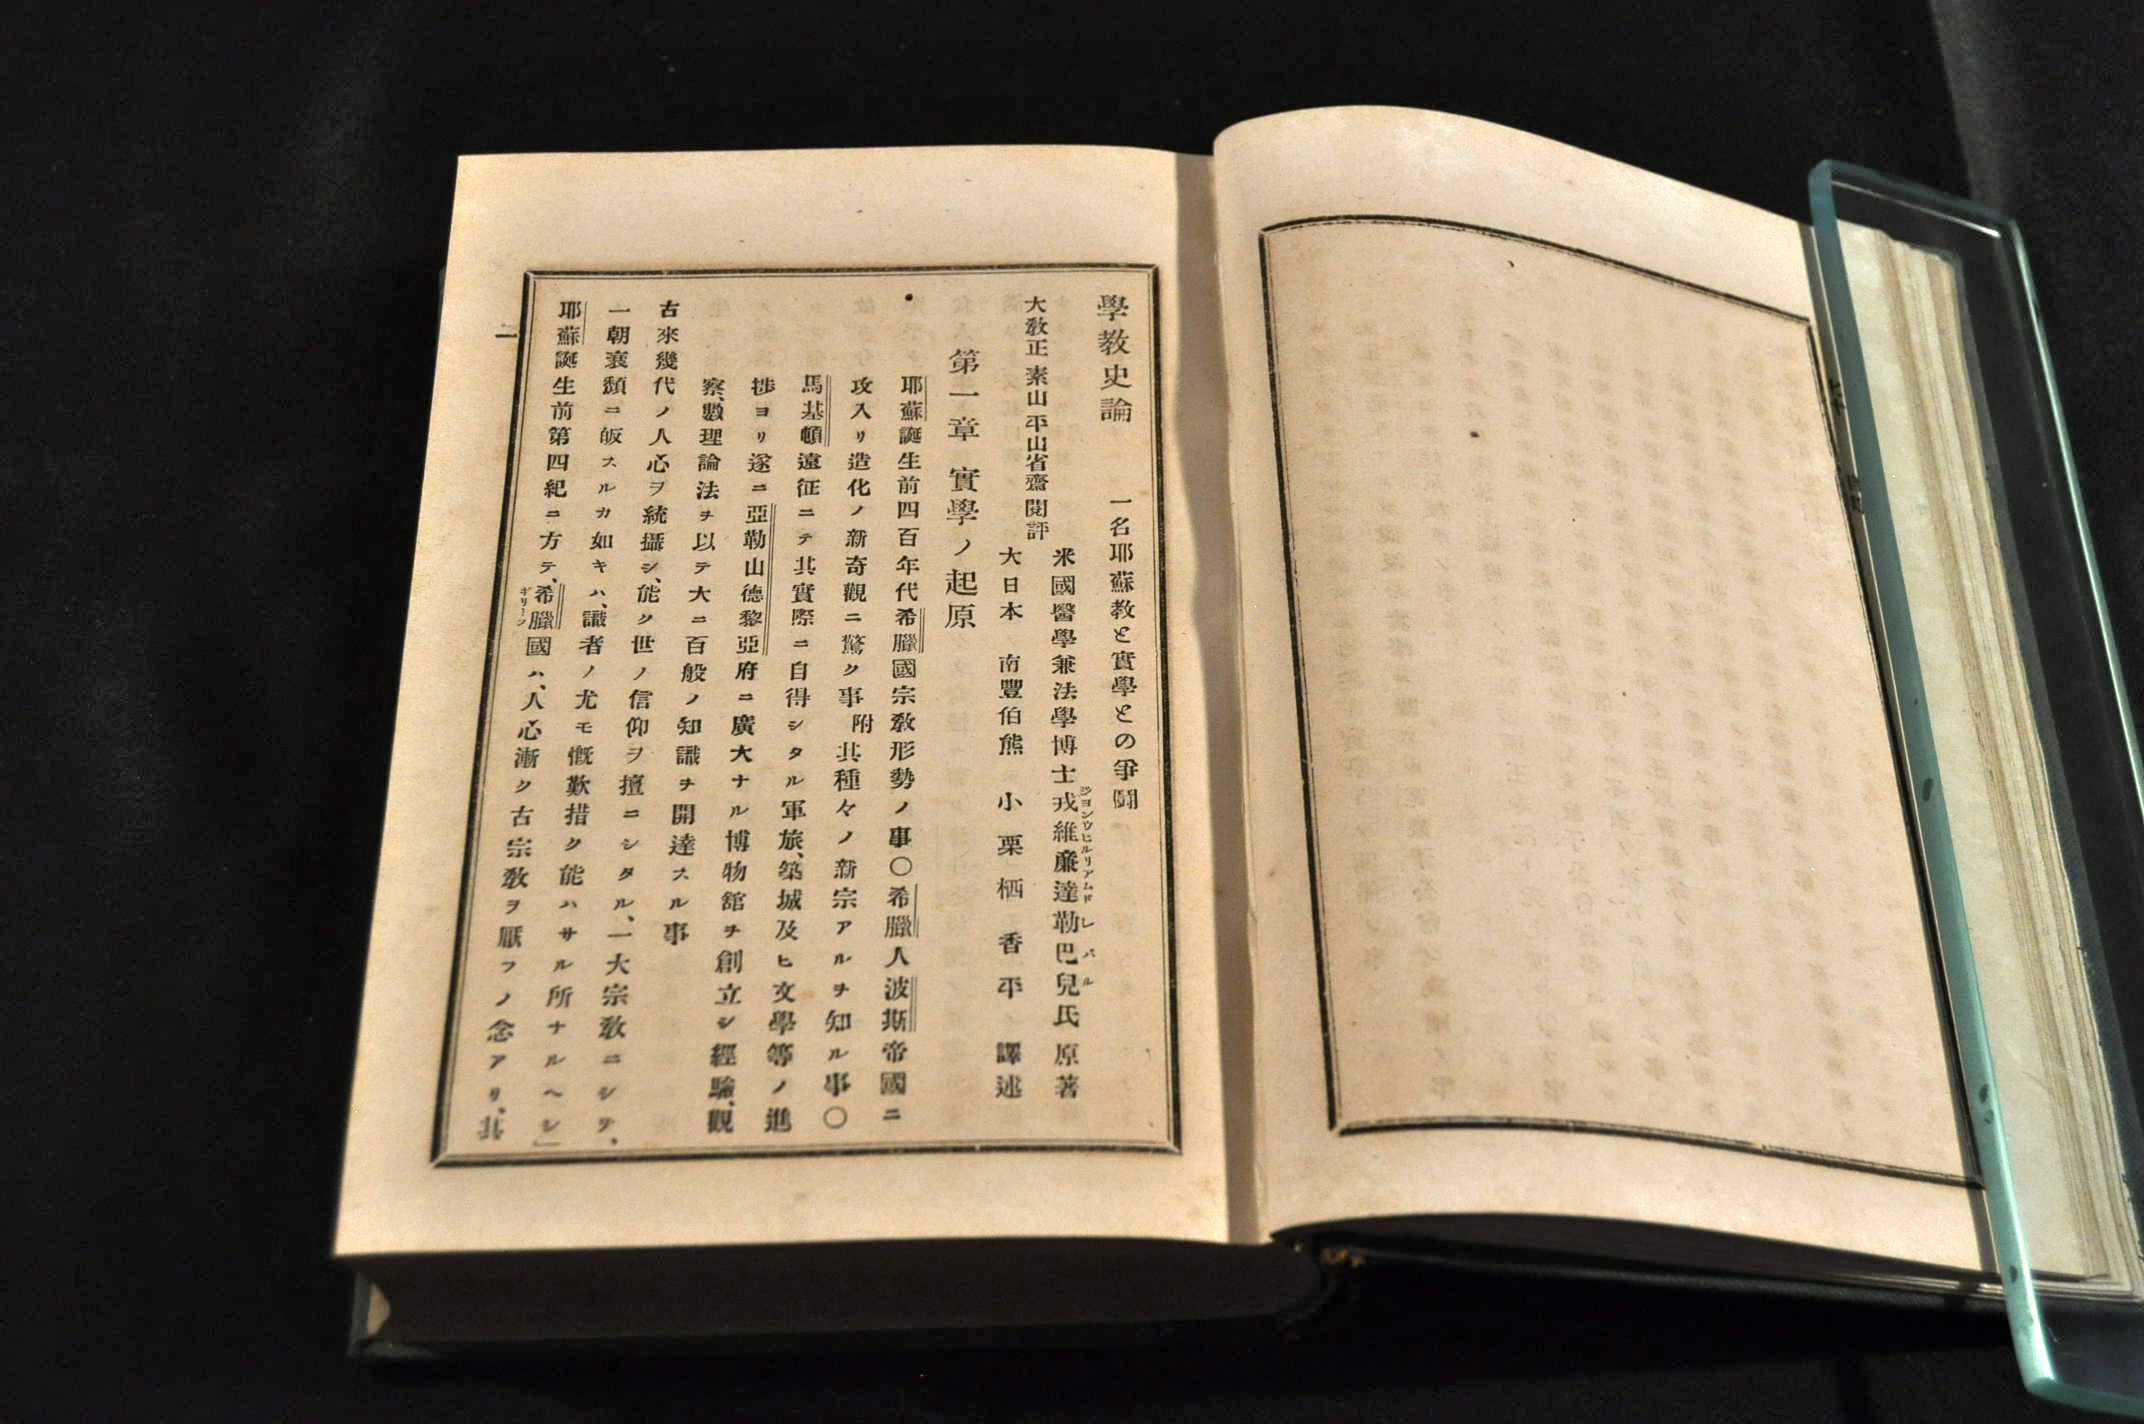 學教史論　一名耶蘇教と實學との爭鬪
米國醫學兼法學博士戎維廉達勒巴兒氏原著
ジヨンウヒルリアムドレバル
大教正素山平山省齋閱評
大日本　南豐伯熊　小栗栖香平　譯述
第一章　實學ノ起原
耶蘇誕生前四百年代希臘國宗教形勢ノ事〇希臘人波斯帝國ニ
攻入リ造化ノ新奇觀ニ驚ク事附其種々ノ新宗アルヲ知ル事〇
馬基頓遠征ニテ其實際ニ自得シタル軍旅、築城及ヒ文學等ノ進
捗ヨリ遂ニ亞勒山德黎亞府ニ廣大ナル博物舘ヲ創立シ經驗、觀
察、數理論法ヲ以テ大ニ百般ノ知識ヲ開達スル事
古來幾代ノ人心ヲ統攝シ、能ク世ノ信仰ヲ擅ニシタル、一大宗教ニシテ、
一朝衰頽ニ皈スルカ如キハ、識者ノ尤モ慨歎措ク能ハサル所ナルヘシ」
耶蘇誕生前第四紀ニ方テ、希臘國ハ、人心漸ク古宗教ヲ厭フノ念アリ、其
ギリーシ
一